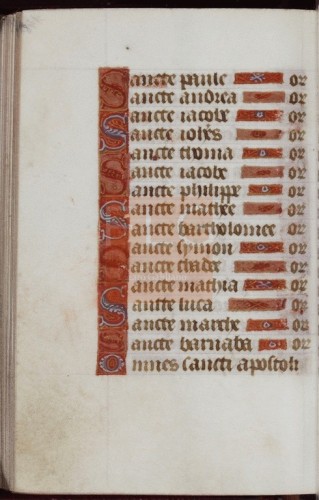 Sancte paule or
Sancte andrea or
Sancte iacobe or
Sancte iohēs or
Sancte thoma or
Sancte iacobe or
Sancte philippe or
Sancte mathee or
Sancte bartholomee or
Sancte symon or
Sancte thadee or
Sancte mathia or
Sancte luca or
Sancte marche or
Sancte barnaba or
Omnes sancti apostoli